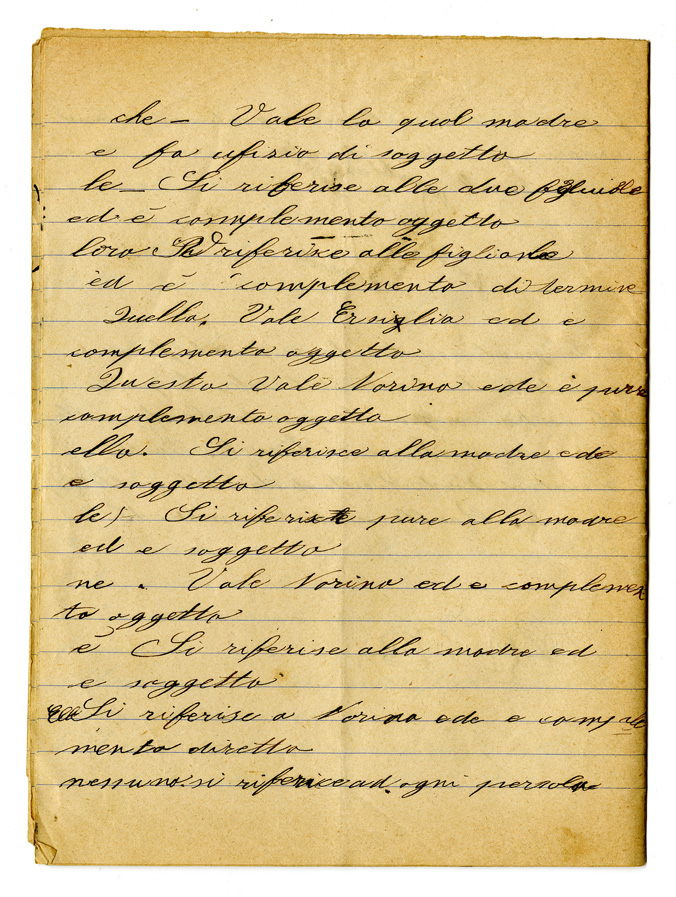 che - Vale la qual madre
e fa ufizio di soggetto
le - Si riferise alle due
ed è complemento oggetto
loro riferise alle figliole
ed è complemento di termine
Quella. Vale Ersiglia ed e
complemento oggetto
Questa Vale Norina ede è pure
complemento oggetto
ella. Si riferisce alla madre ede
e soggetto
le) Si riferiste pure alla madre
ed e soggetto
ne . Vale Norina ed e complemen
to oggetto
è Si riferise alla madre ed
e soggetto
Ella Si riferise a Norina ede e comple
mento diretto
nessuno. si riferice ad. ogni persona